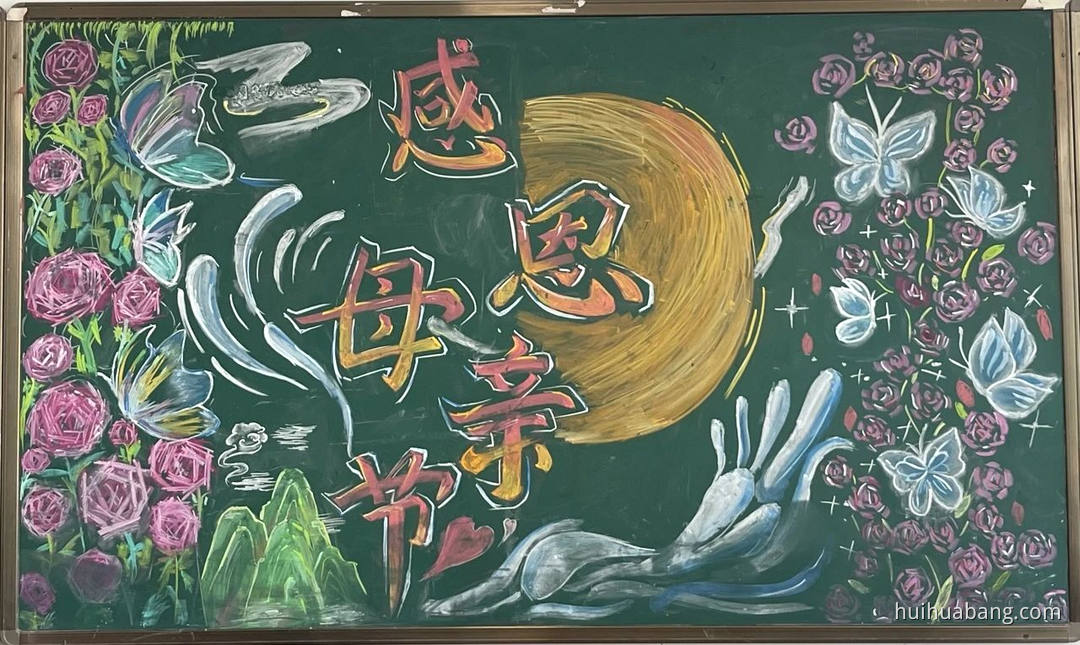 感恩
母亲
节
huihuabang.com